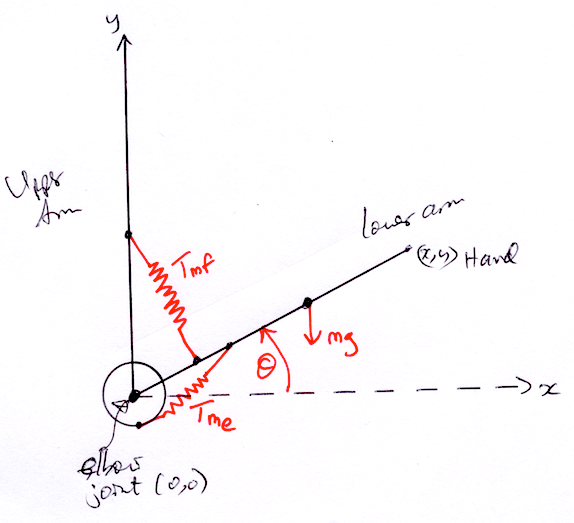 y
Upper
Arm
lower arm
(x,y) Hand
Tmf
mg
θ
x
Tme
elbow
joint (0,0)